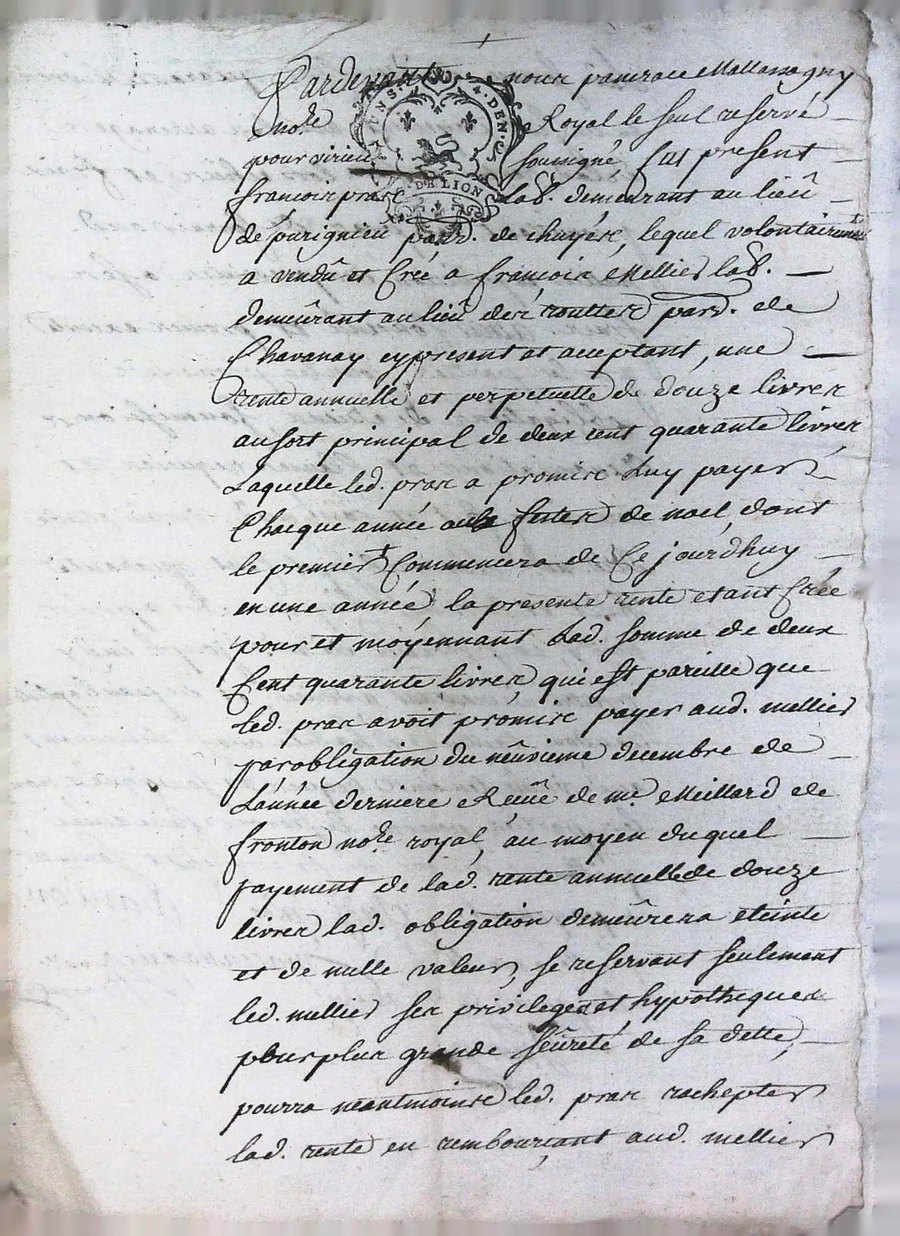 Pardevant nous pancrace Mallassagny
no.re Royal le seul reservé
pour virieu soussigné, fut present
francois pras lab.r demeurant au lieû
de purignieu parr. de chuyer, lequel volontairement
a vendû et Créé a francois Mellier lab.r
demeûrant au lieû des routtes parr. de
Chavanay cy present et aceptant, une
rente annuelle et perpetuelle de douze livres
au sort principal de deux cent quarante livres
Laquelle led. pras a promise Luy payer
Chaeque année aux festes de noel, dont
le premier Commencera de Ce jourdhuy
en une année, la presente rente etant Créée
pour et moÿennant Lad. somme de deux
Cent quarante livres, qui est pareille que
led. pras avoit promise payer aud. mellier
par obligation du neûvieme decembre de
L'année derniere Receûe de me. Meillard de
fronton no.re royal, au moyen du quel
payement de lad. rente annuelle de douze
livres lad. obligation demeûrera eteinte
et de nulle valeur, se reservant seulement
led. mellier ses privileges et hypotheques
pour plus grande seûreté de sa dette,
pourra neantmoins led. pras rachepter
lad. rente en remboursant aud. mellier
UN S. 4. DEN.
G. DE LION